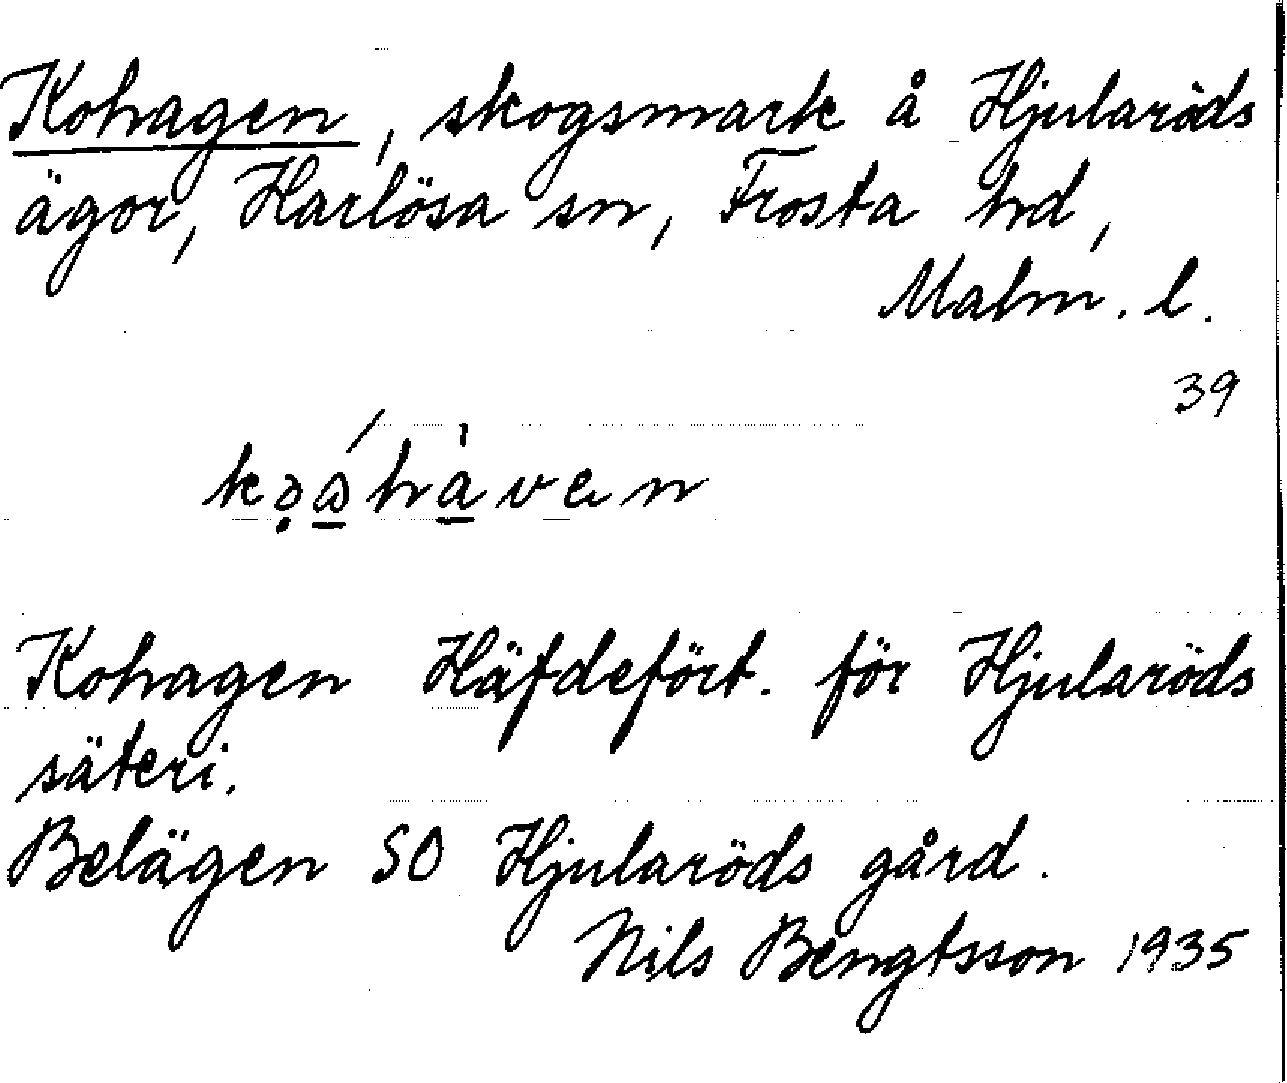 Kohagen, skogsmark å Hjularöds
ägor, Harlösa sn, Frosta hd,
Malm. l.
39
Kohagen Häfdefört. för Hjularöds
säteri.
Belägen SO Hjularöds gård.
Nils Bengtsson 1935